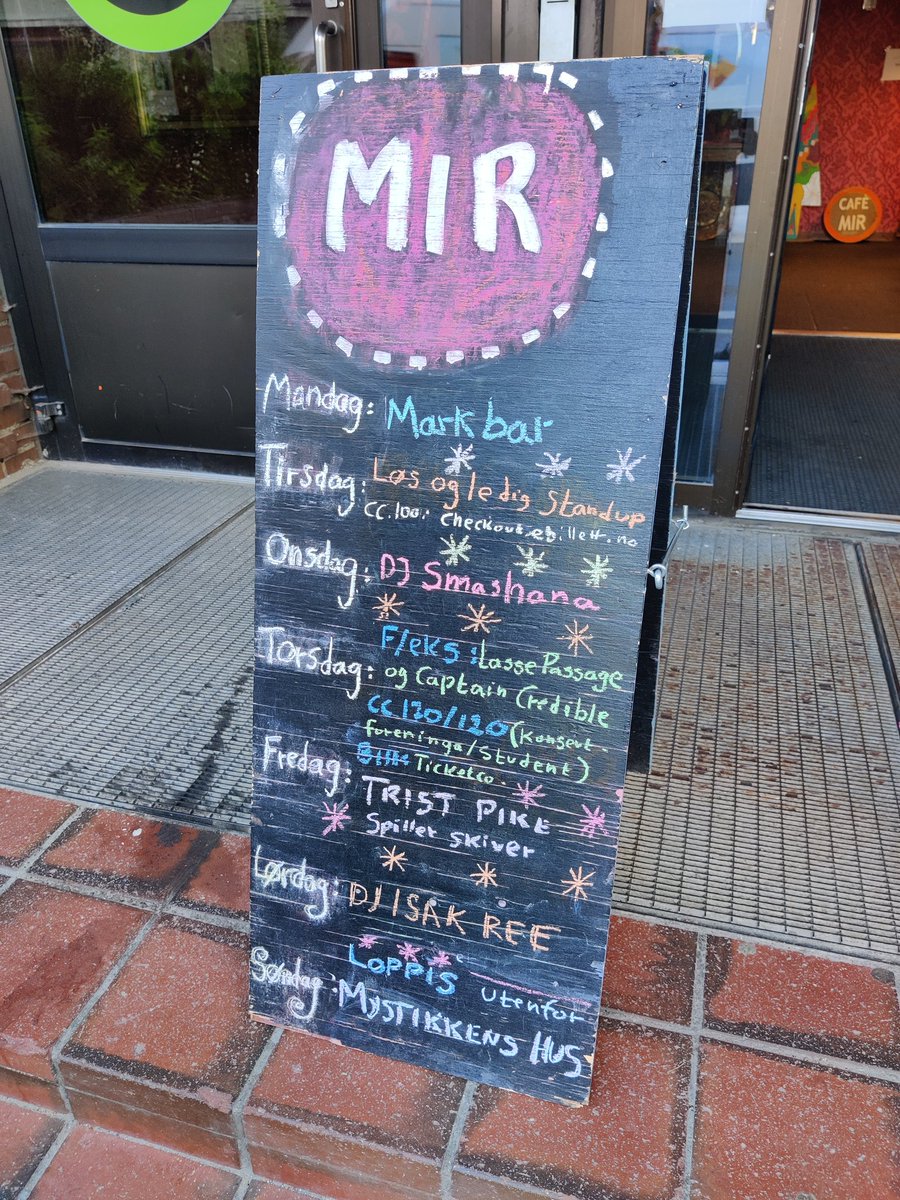 MIR
CAFÉ
MIR
Mandag: Mark bar
Tirsdag: Løs og ledig Standup
CC.100,- Checkout.ebillett.no
Onsdag: DJ Smashana
Torsdag: F/eks: Lasse Passage
og Captain Credible
CC 170/120 (Konsert-
foreninga/Student)
Ticketco.
Fredag: TRIST PIKE
Spiller skiver
Lørdag: DJ ISAK REE
LOPPIS utenfor
Søndag: MYSTIKKENS HUS